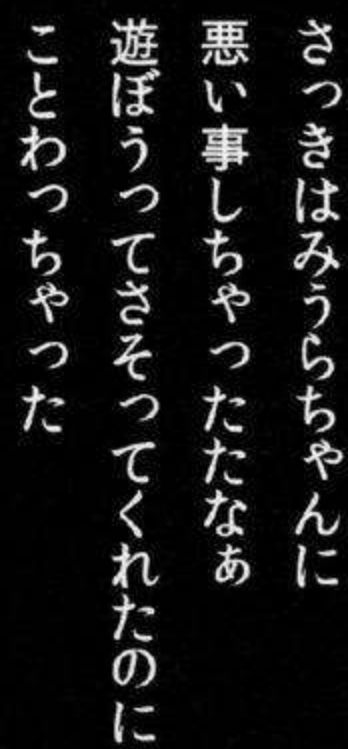 さっきはみうらちゃんに
悪い事しちゃったたなぁ
遊ぼうってさそってくれたのに
ことわっちゃった